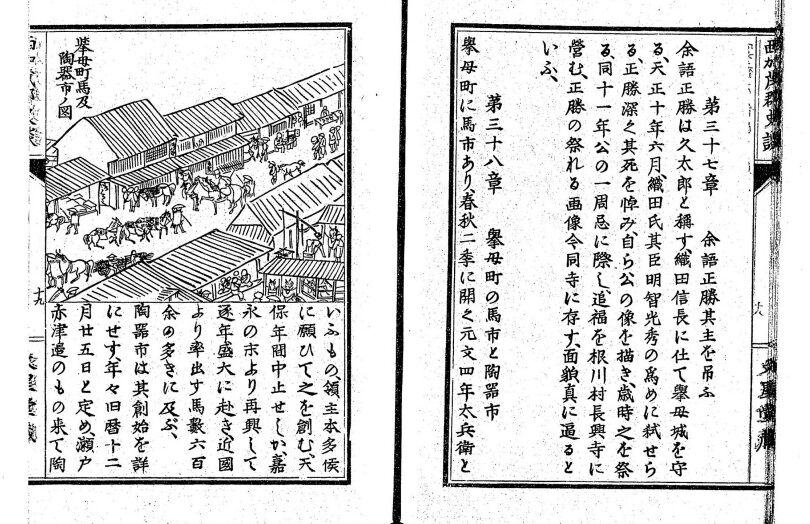 第三十七章　余語正勝其主を吊ふ
余語正勝は久太郎と稱す、織田信長に仕て擧母城を守
る、天正十年六月織田氏其臣明智光秀の爲めに弑せら
る、正勝深く其死を悼み、自ら公の像を描き、歳時之を祭
る、同十一年公の一周忌に際し追福を根川村長興寺に
營む、正勝の祭れる画像今同寺に存す、面貌真に逼ると
いふ、
第三十八章　擧母町の馬市と陶器市
擧母町に馬市あり、春秋二季に開く元文四年太兵衛と
十九
擧母町馬及
陶器市ノ図
いふもの、領主本多侯
に願ひて之を創む、天
保年間中止せしか、嘉
永の末より再興して
逐年盛大に赴き近國
より率出す馬數六百
余の多きに及ぶ、
陶器市は其創始を詳
にせす年々旧暦十二
月廿五日と定め、瀬戸
赤津邉のもの来て陶